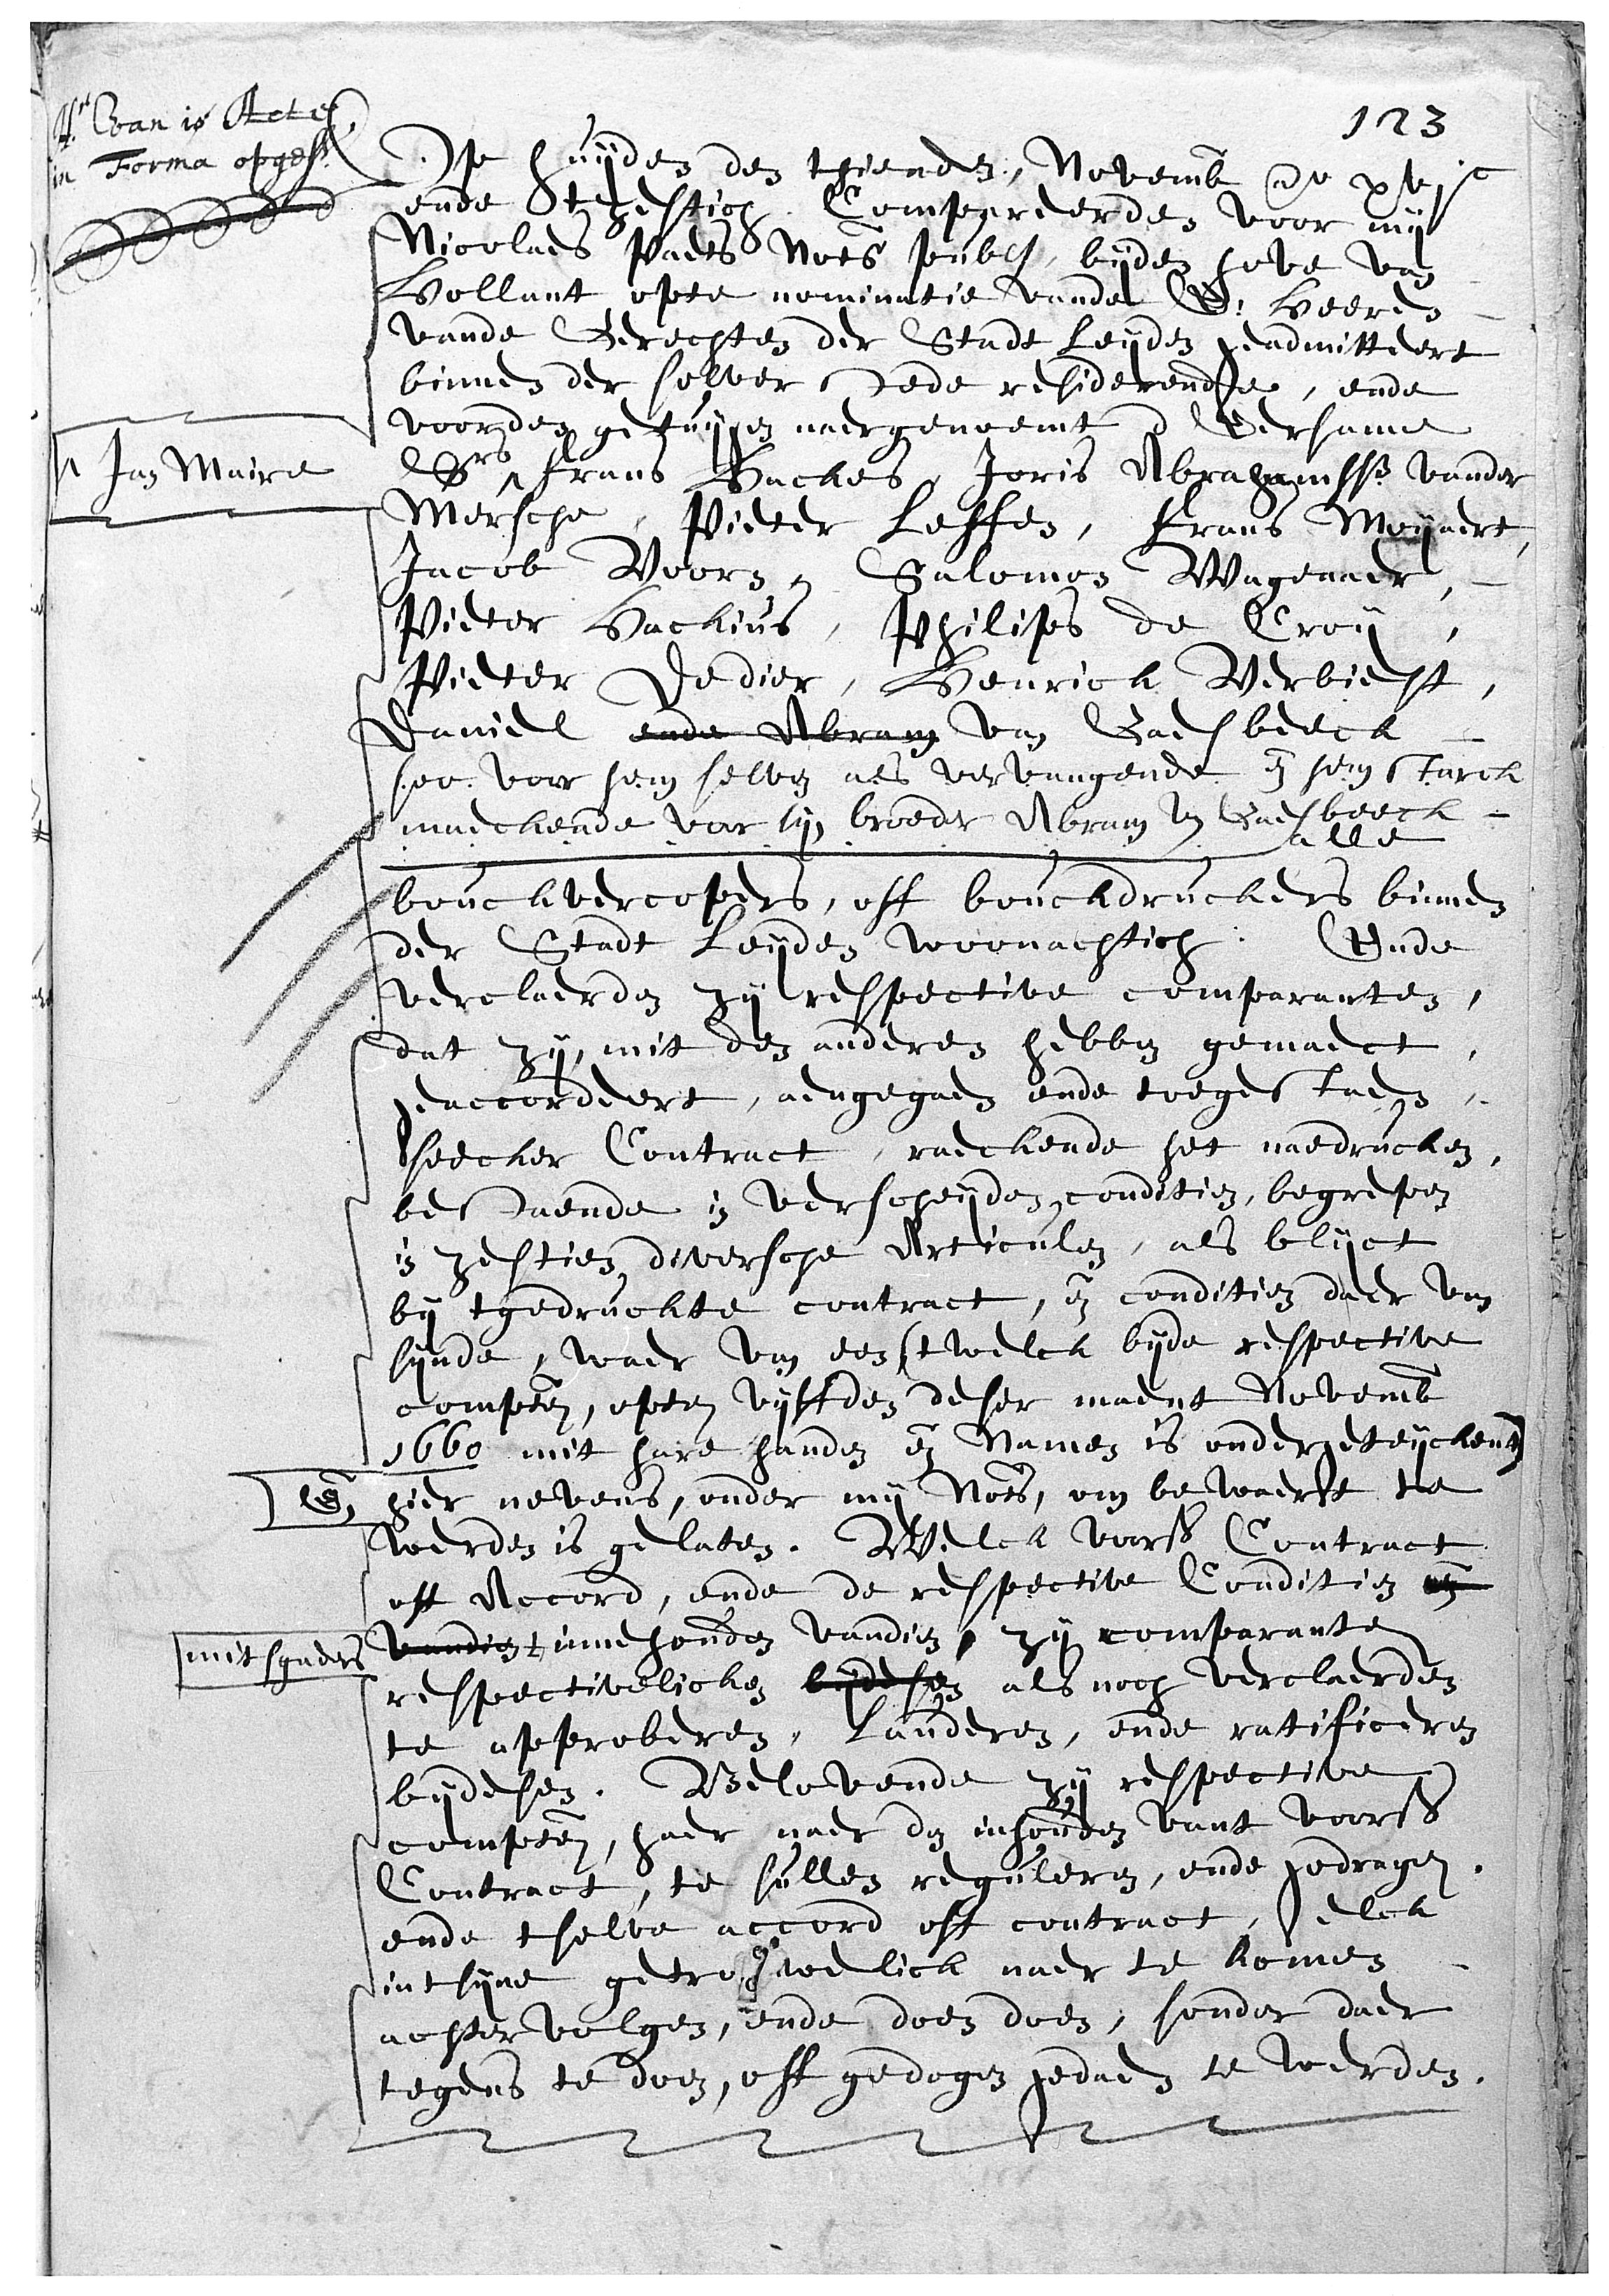 123
Hr. van is Acte
in Forma opgest.
Op huijden den thienden Novemb
ende tzestich Compareerden voor mij
Nicolaes Paets Nots publ, bijden hove van
Hollant opte nominatie vande E: Heeren
vande Gerechten der Stadt Leijden geadmitteert
binnen der selver stede residerende, ende
voorden getuijgen naergenoemt d Eersame
Jan Maire
Srs Frans Hackes, Joris Abrahamsz vander
Mersche, Pieter Leffen, Frans Moijaert,
Jacob Voorn, Salomon Wagenaer,
Pieter Hackius, Philips de Croij,
Pieter Dedier, Henrick Verbiest,
Daniel ende Abram van Gaesbeeck
soo voor hem selven als vervangende en hem starck
maeckende voor sijn broeder Abram vn Gaesbeeck
alle
bouckvercopers, off bouckdruckers binnen
der Stadt Leijden woonachtich. Ende
verclaerden zij respective comparanten,
dat zij, mit den anderen hebben gemaect,
geaccordeert, aengegaen ende toegestaen,
seecker Contract, raeckende het naedrucken,
bestaende in verscheijden conditien, begrepen
in zestien diversche Articulen, als blijct
bij tgedruckte contract, en conditien daer van
sijnde, waer van een (twelck bijde respective
compten, opten vijffden deser maent Novemb
1660 mit hare handen en Namen is onderteijckent)
En hier nevens, onder mij Nots, om bewaert te
werden is gelaten. Welck voorss Contract
oft Accord, ende de respective Conditien en
mitsgaders vandien innehouden vandien, zij comparante
respectivelicken bijdesen als noch verclaerden
te approberen, lauderen, ende ratificeren
bijdesen. Belovende zij respective
compten, haer naer den inhouden vant voorss
Contract, te sullen reguleren, ende gedragen.
ende tselve accord oft contract, elck
int sijne getrouwelick naer te komen
achtervolgen, ende doen doen, sonder daer
tegens te doen, oft gedogen gedaen te werden.